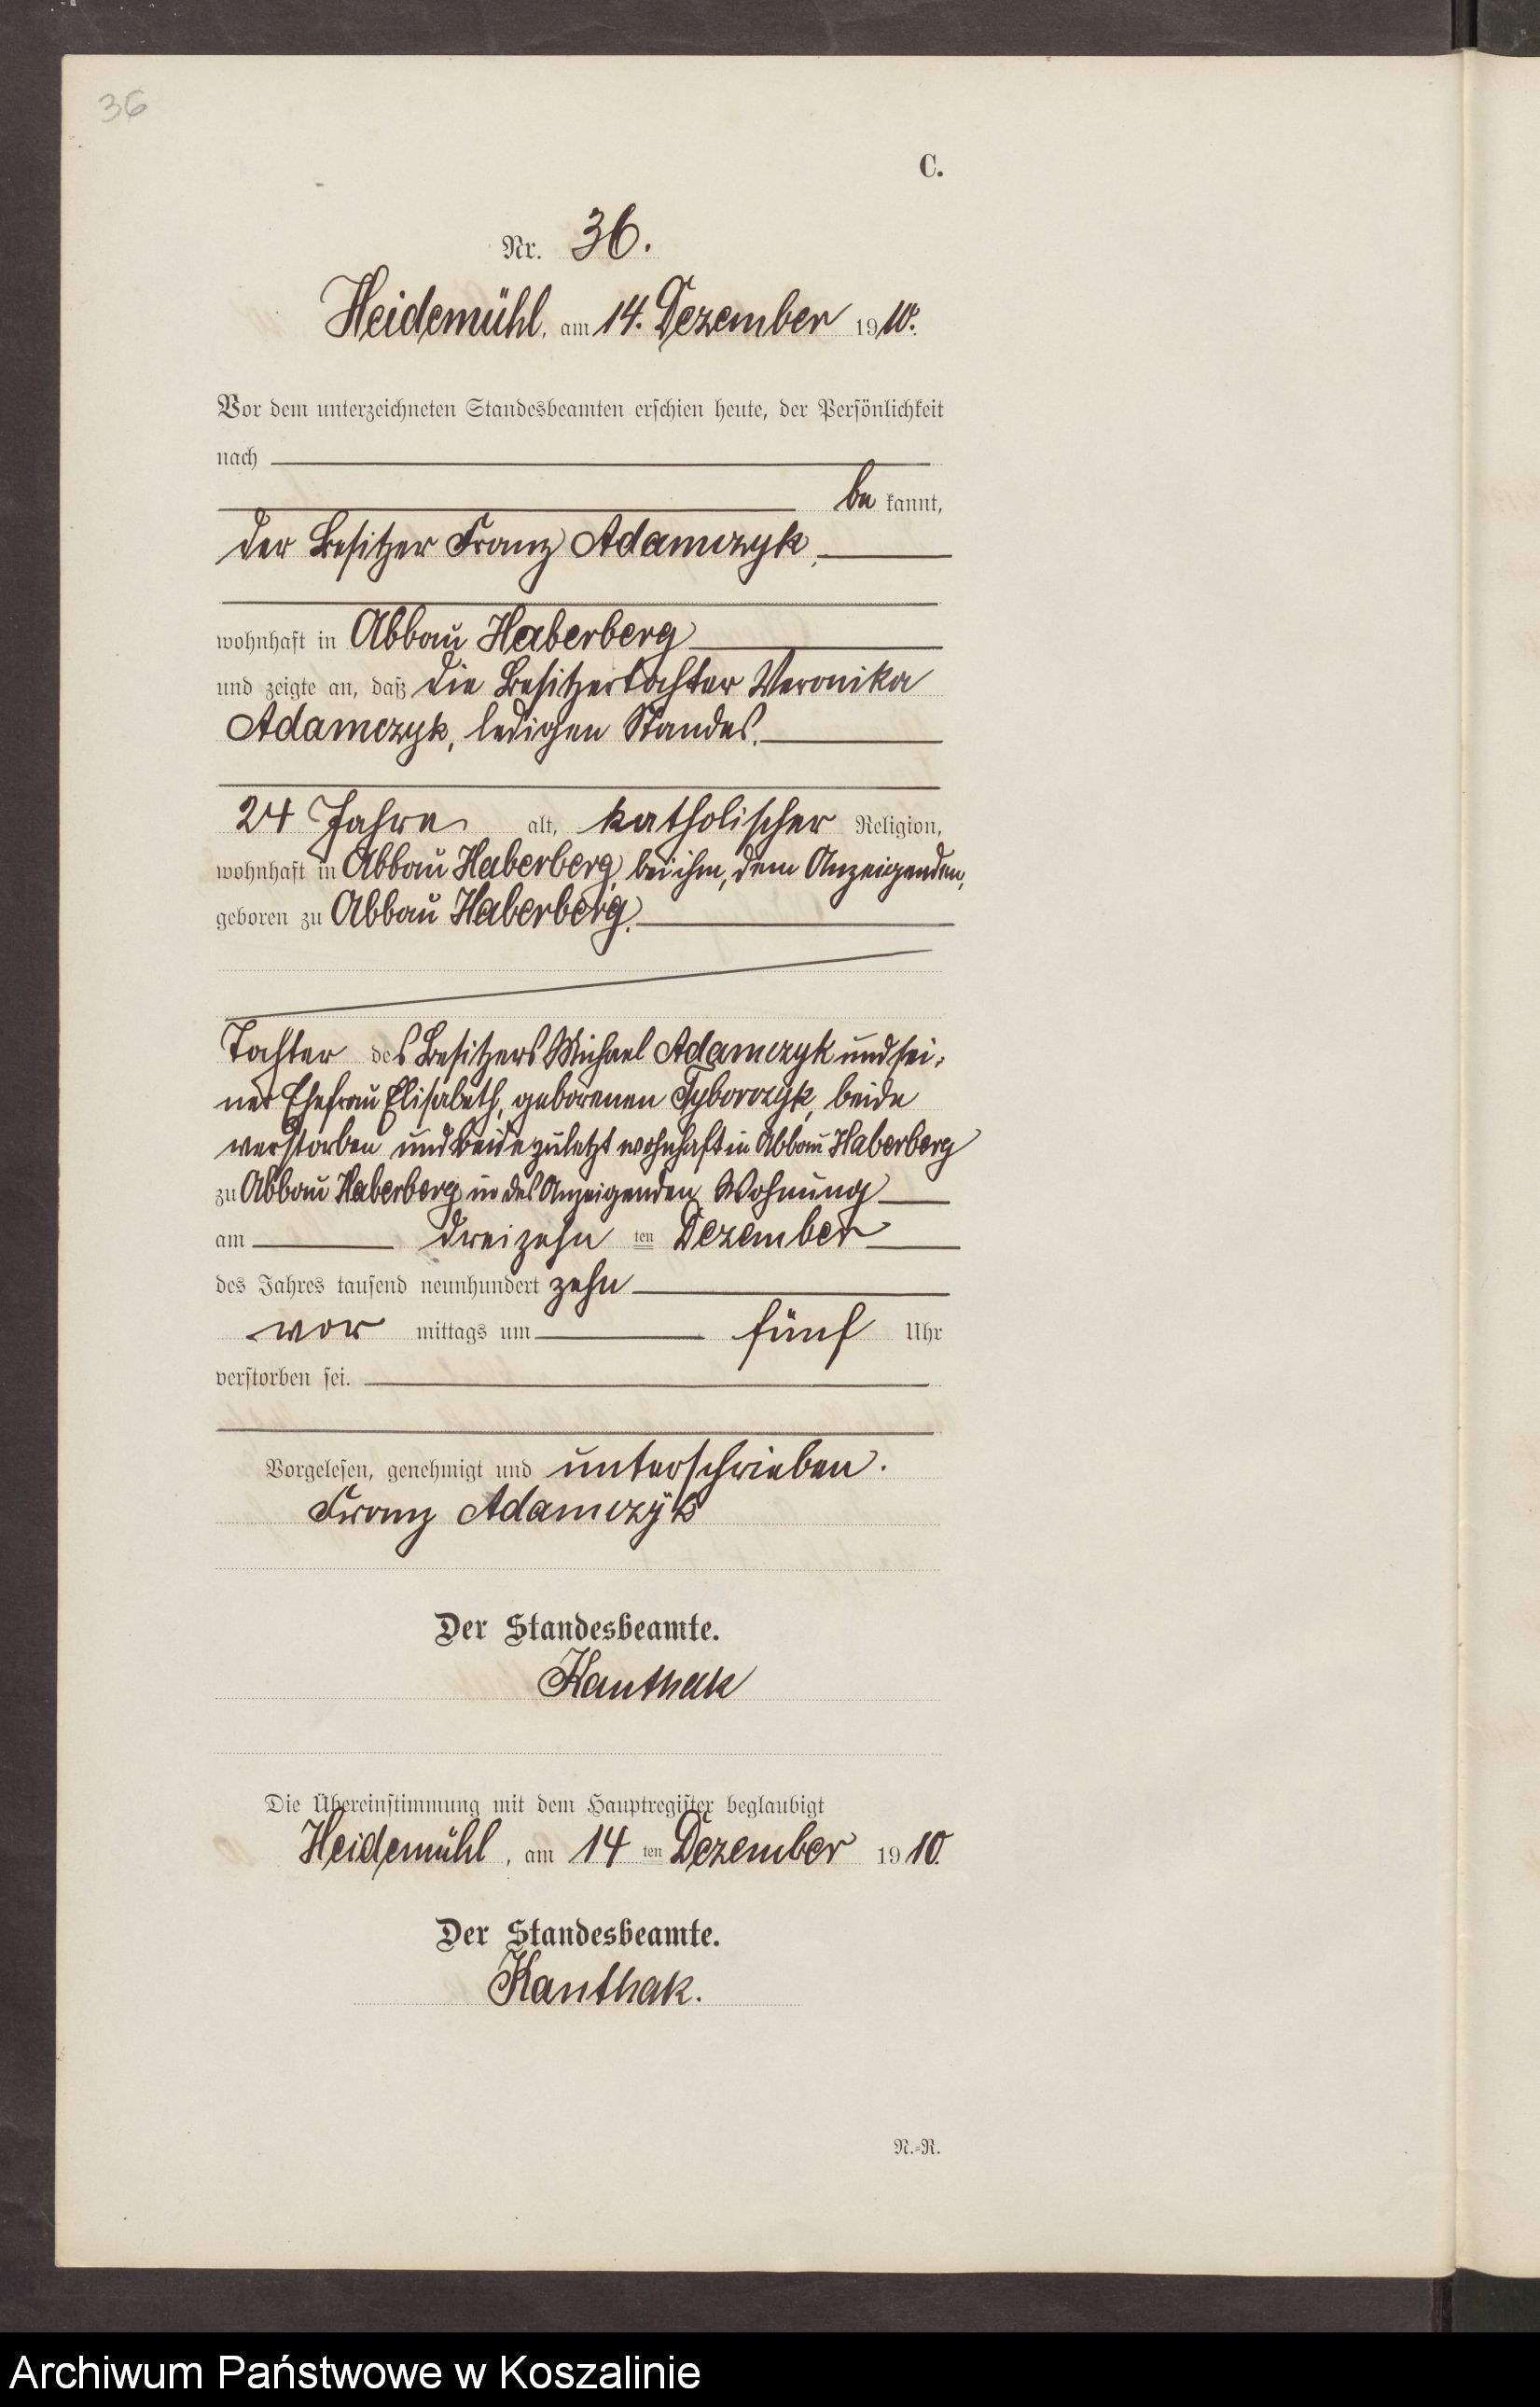 36
C.
Nr. 36.
Heidemühl, am 14. Dezember 1910.
Vor dem unterzeichneten Standesbeamten erschien heute, der Persönlichkeit
nach
be kannt,
der Besitzer Franz Adamczyk,
wohnhaft in Abbau Haberberg
und zeigte an, daß die Besitzertochter Veronika
Adamczyk, ledigen Standes,
24 Jahre alt, katholischer Religion,
wohnhaft in Abbau Haberberg, bei ihm, dem Anzeigenden,
geboren zu Abbau Haberberg,
Tochter des Besitzers Michael Adamczyk und sei-
ner Ehefrau Elisabeth, geborenen Tyborczyk, beide
verstorben und beide zuletzt wohnhaft in Abbau Haberberg
zu Abbau Haberberg in des Anzeigenden Wohnung
am dreizehn ten Dezember
des Jahres tausend neunhundert zehn
vor mittags um fünf Uhr
verstorben sei.
Vorgelesen, genehmigt und unterschrieben.
Franz Adamczyk
Der Standesbeamte.
Kanthak
Die Übereinstimmung mit dem Hauptregister beglaubigt
Heidemühl, am 14 ten Dezember 1910.
Der Standesbeamte.
Kanthak.
N.-R.
Archiwum Państwowe w Koszalinie